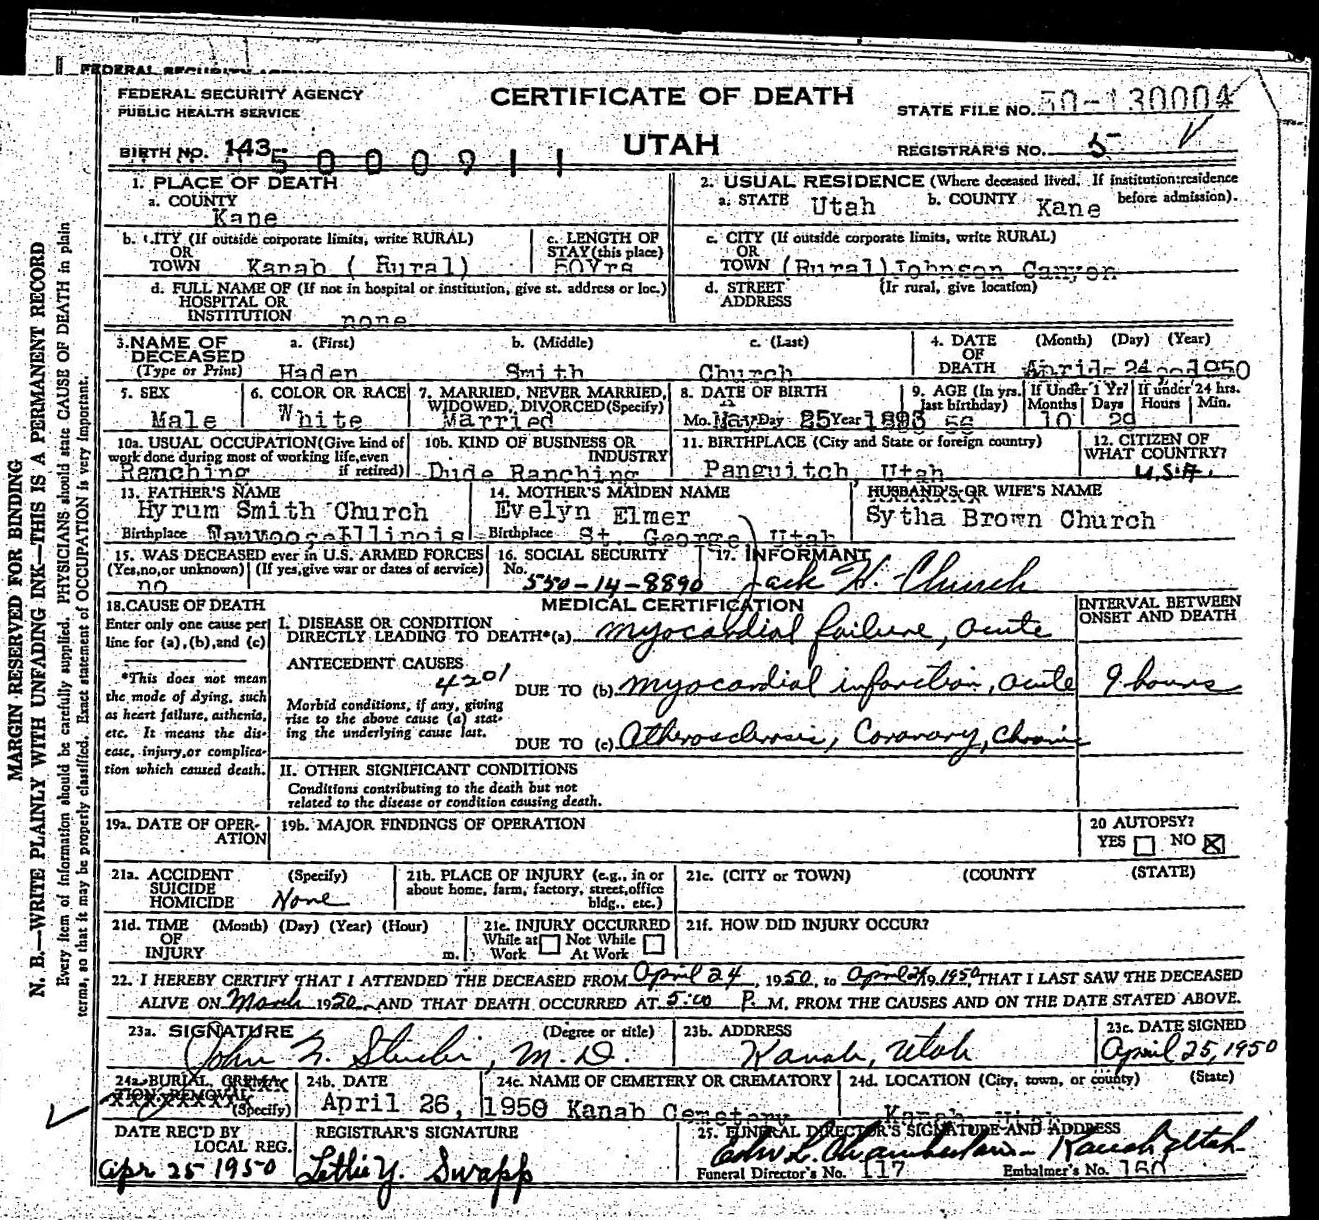 FEDERAL SECURITY AGENCY
PUBLIC HEALTH SERVICE
CERTIFICATE OF DEATH
UTAH
STATE FILE NO. 50-130004
BIRTH NO. 143
5000911
REGISTRAR'S NO. 5
1. PLACE OF DEATH
a. COUNTY
Kane
2. USUAL RESIDENCE (Where deceased lived. If institution: residence before admission).
a. STATE Utah b. COUNTY Kane
b. CITY (If outside corporate limits, write RURAL)
OR
TOWN Kanab (Rural)
c. LENGTH OF
STAY (this place)
50Yrs
c. CITY (If outside corporate limits, write RURAL)
OR
TOWN (Rural) Johnson Canyon
d. FULL NAME OF (If not in hospital or institution, give st. address or loc.)
HOSPITAL OR
INSTITUTION none
d. STREET (If rural, give location)
ADDRESS
3. NAME OF
DECEASED
(Type or Print)
a. (First) b. (Middle) c. (Last)
Haden Smith Church
4. DATE (Month) (Day) (Year)
OF
DEATH April 24 1950
5. SEX
Male
6. COLOR OR RACE
White
7. MARRIED, NEVER MARRIED,
WIDOWED, DIVORCED (Specify)
Married
8. DATE OF BIRTH
Mo. May Day 25 Year 1893
9. AGE (In yrs. last birthday)
56
If Under 1 Yr. If under 24 hrs.
Months Days Hours Min.
10 29
10a. USUAL OCCUPATION (Give kind of
work done during most of working life, even
if retired)
Ranching
10b. KIND OF BUSINESS OR
INDUSTRY
Dude Ranching
11. BIRTHPLACE (City and State or foreign country)
Panguitch, Utah
12. CITIZEN OF
WHAT COUNTRY?
U.S.A.
13. FATHER'S NAME
Hyrum Smith Church
Birthplace Nauvoo Illinois
14. MOTHER'S MAIDEN NAME
Evelyn Elmer
Birthplace St. George, Utah
HUSBAND'S OR WIFE'S NAME
Sytha Brown Church
15. WAS DECEASED ever in U.S. ARMED FORCES
(Yes, no, or unknown) (If yes, give war or dates of service)
no
16. SOCIAL SECURITY
No. 550-14-8890
17. INFORMANT
Jack H. Church
18. CAUSE OF DEATH
Enter only one cause per
line for (a), (b), and (c)
*This does not mean
the mode of dying, such
as heart failure, asthenia,
etc. It means the dis-
ease, injury, or complica-
tion which caused death.
MEDICAL CERTIFICATION
INTERVAL BETWEEN
ONSET AND DEATH
I. DISEASE OR CONDITION
DIRECTLY LEADING TO DEATH*(a) Myocardial failure, acute
ANTECEDENT CAUSES
4201
DUE TO (b) Myocardial infarction, acute 9 hours
Morbid conditions, if any, giving
rise to the above cause (a) stat-
ing the underlying cause last.
DUE TO (c) Atherosclerosis, Coronary, Chronic
II. OTHER SIGNIFICANT CONDITIONS
Conditions contributing to the death but not
related to the disease or condition causing death.
19a. DATE OF OPER-
ATION
19b. MAJOR FINDINGS OF OPERATION
20 AUTOPSY?
YES NO
21a. ACCIDENT (Specify)
SUICIDE
HOMICIDE None
21b. PLACE OF INJURY (e.g., in or
about home, farm, factory, street, office
bldg., etc.)
21c. (CITY or TOWN) (COUNTY (STATE)
21d. TIME (Month) (Day) (Year) (Hour)
OF
INJURY m.
21e. INJURY OCCURRED
While at Not While
Work At Work
21f. HOW DID INJURY OCCUR?
22. I HEREBY CERTIFY THAT I ATTENDED THE DECEASED FROM April 24, 1950, to April 24, 1950, THAT I LAST SAW THE DECEASED
ALIVE ON March 1950 AND THAT DEATH OCCURRED AT 5:00 P. M. FROM THE CAUSES AND ON THE DATE STATED ABOVE.
23a. SIGNATURE (Degree or title)
John M.D.
23b. ADDRESS
Kanab, Utah
23c. DATE SIGNED
April 25, 1950
24a. BURIAL, CREMA-
TION, REMOVAL
(Specify)
24b. DATE
April 26, 1950
24c. NAME OF CEMETERY OR CREMATORY
Kanab Cemetery
24d. LOCATION (City, town, or county) (State)
Kanab Utah
DATE REC'D BY
LOCAL REG.
Apr 25 1950
REGISTRAR'S SIGNATURE
Lethie Y. Swapp
25. FUNERAL DIRECTOR'S SIGNATURE AND ADDRESS
Chamberlain Kanab Utah
Funeral Director's No. 117 Embalmer's No. 160
MARGIN RESERVED FOR BINDING
N. B.—WRITE PLAINLY WITH UNFADING INK—THIS IS A PERMANENT RECORD
Every item of information should be carefully supplied. PHYSICIANS should state CAUSE OF DEATH in plain
terms, so that it may be properly classified. Exact statement of OCCUPATION is very important.